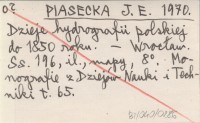 PIASECKA J. E. 1970.
Dzieje hydrografii polskiej
do 1850 roku. – Wrocław.
Ss. 196, il., mapy, 8°. Mo-
nografie z Dziejów Nauki i Tech-
niki t. 65.